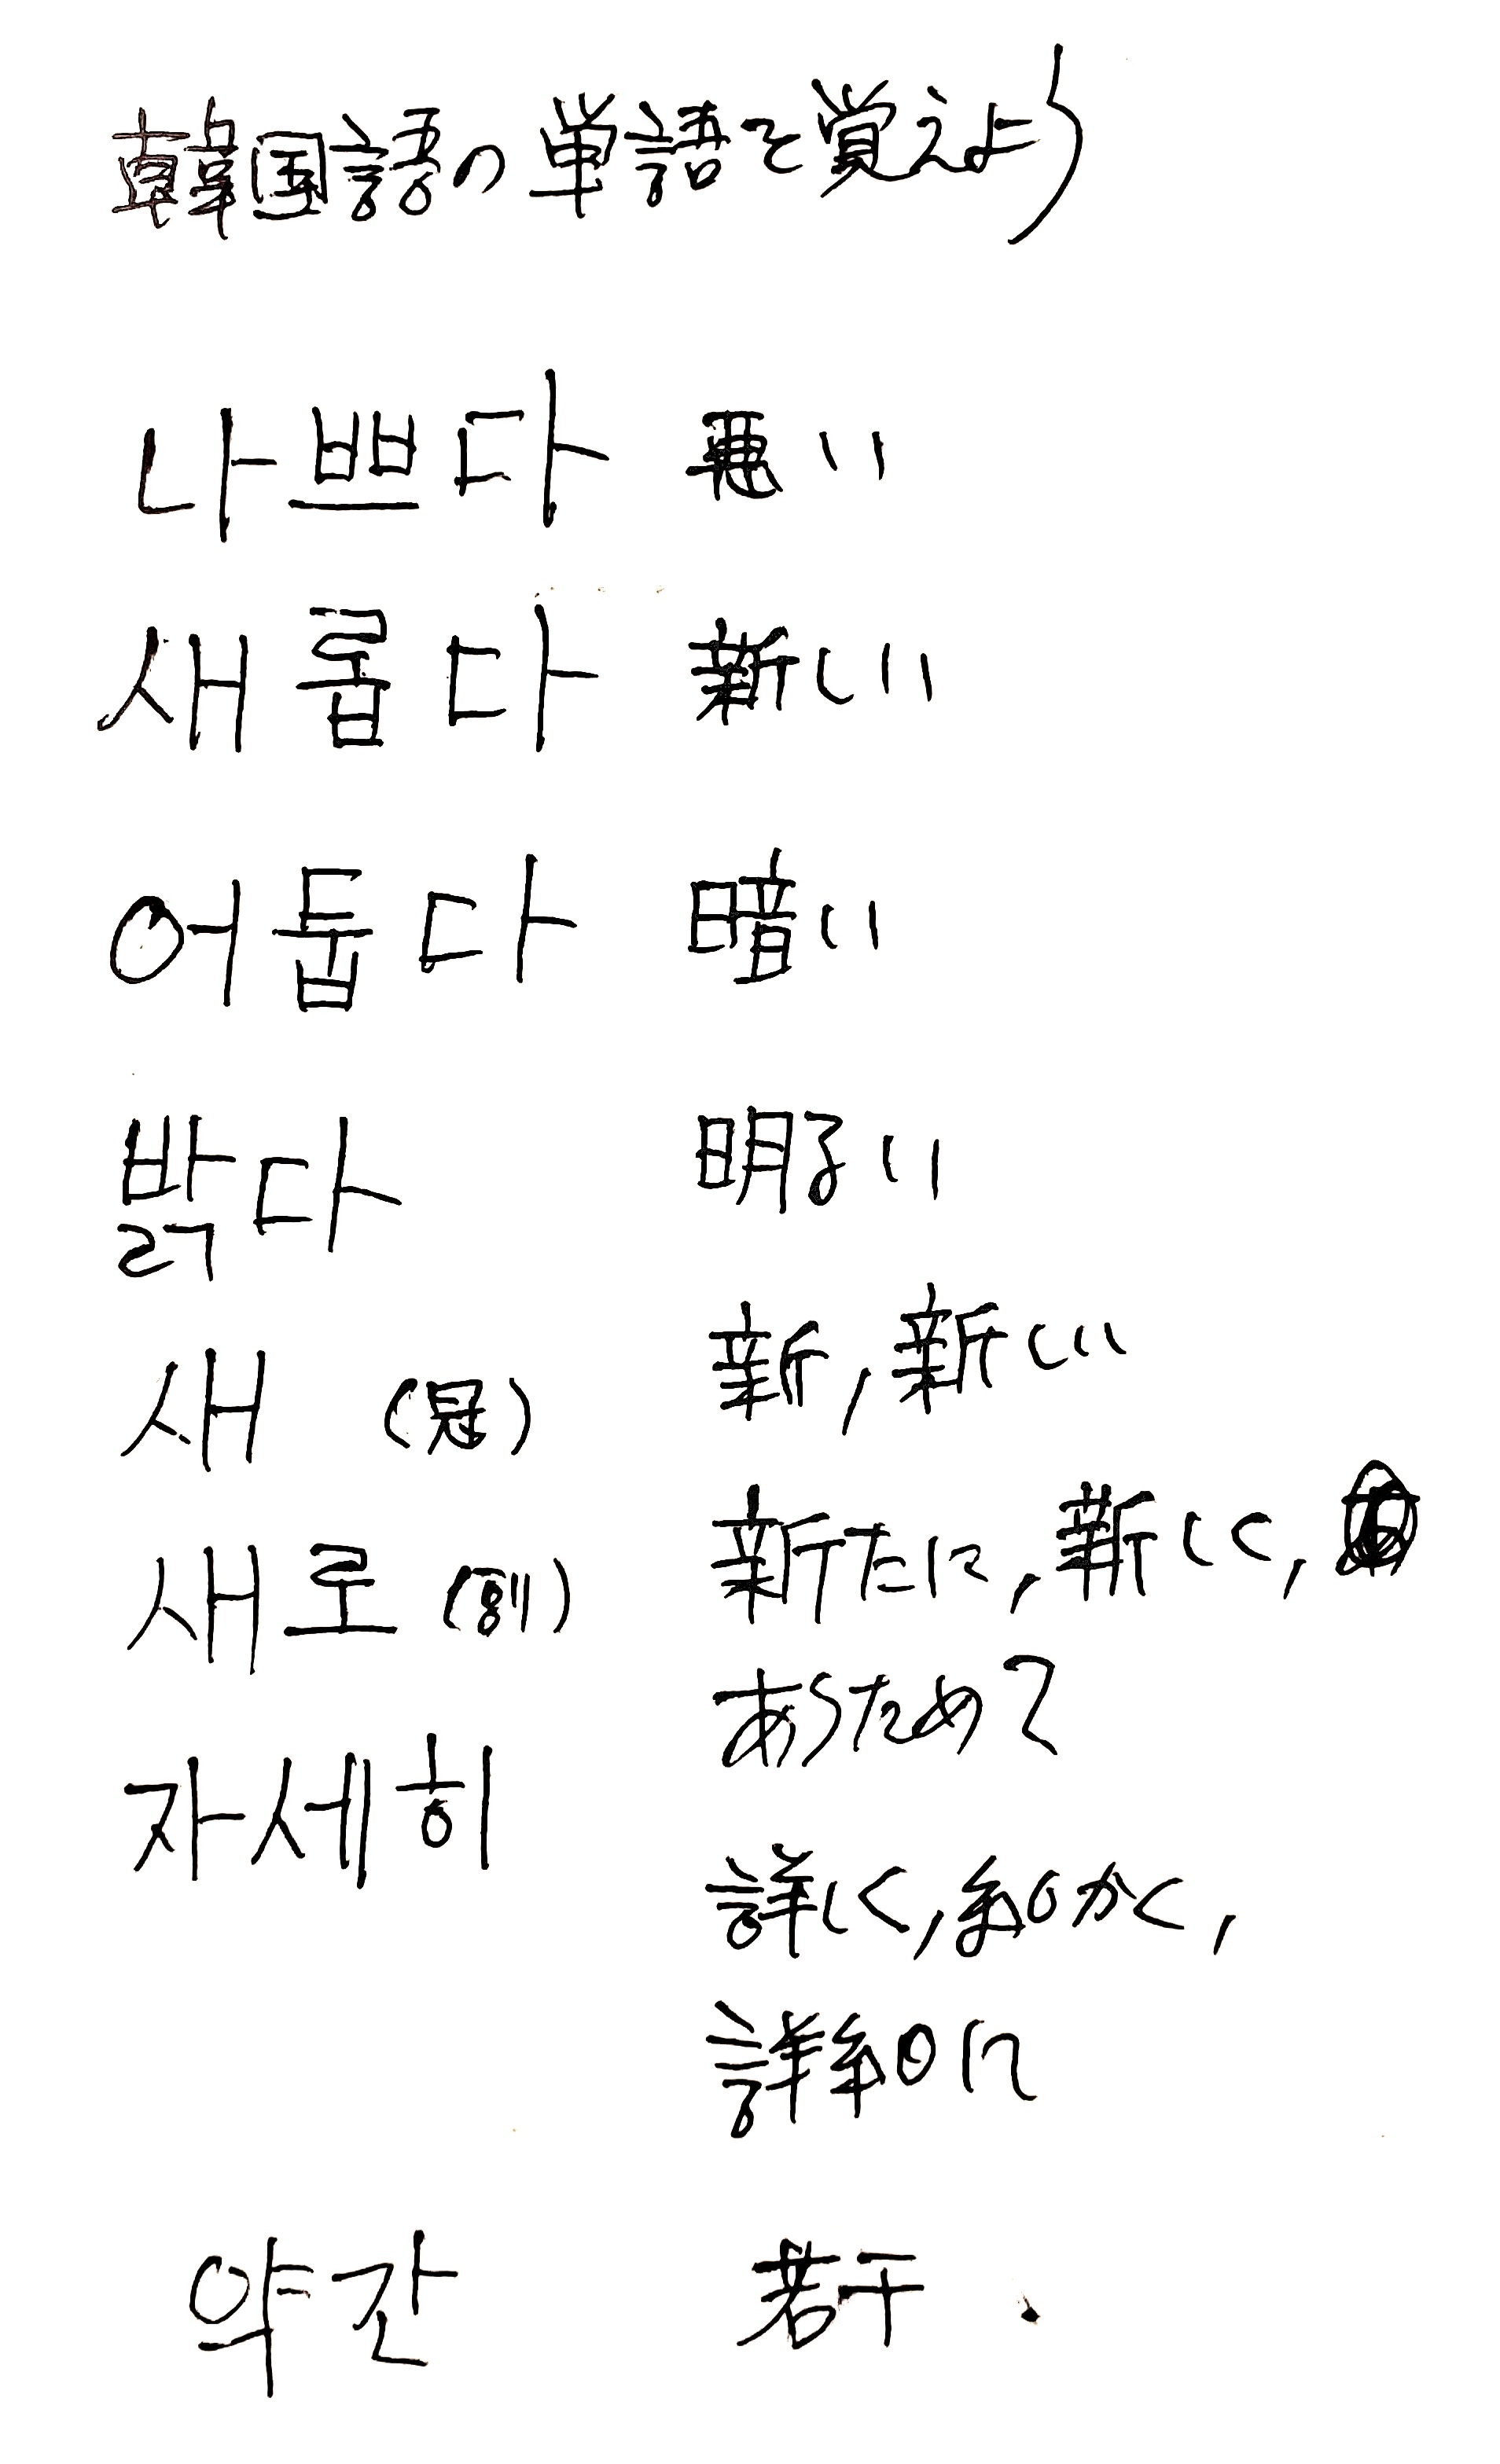 韓国語の単語を覚えよう
나쁘다 悪い
새롭다 新しい
어둡다 暗い
밝다 明るい
새 (冠) 新, 新しい
새로 (副) 新たに, 新しく,
あらためて
자세히
詳しく, 細かく,
詳細に
약간 若干